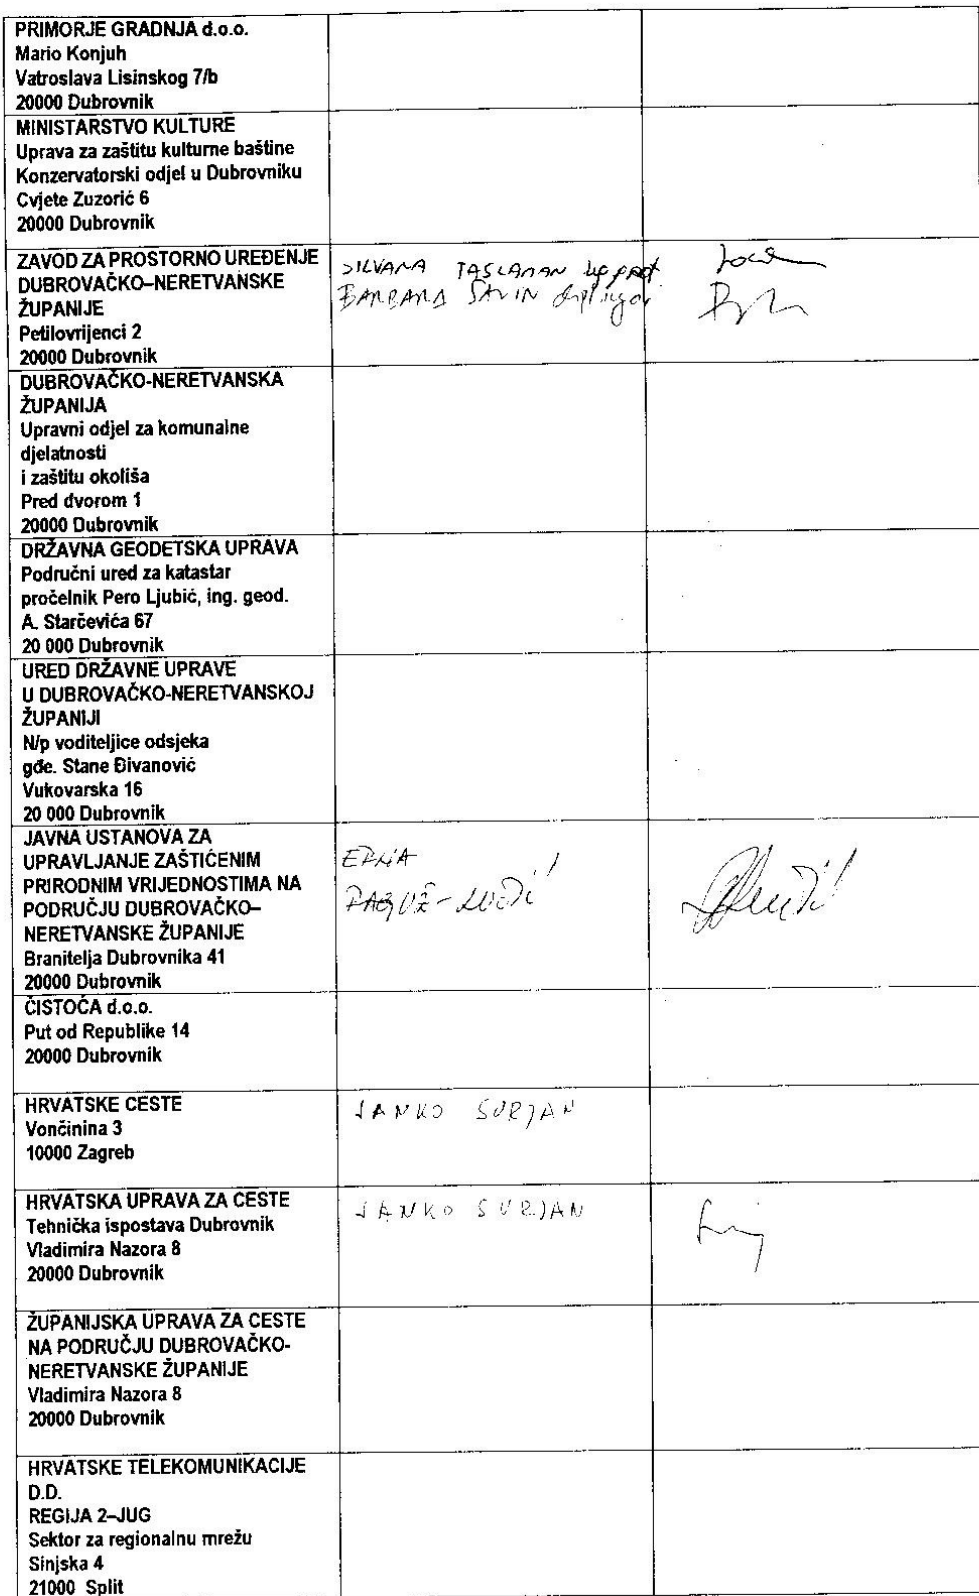 PRIMORJE GRADNJA d.o.o.
Mario Konjuh
Vatroslava Lisinskog 7/b
20000 Dubrovnik
MINISTARSTVO KULTURE
Uprava za zaštitu kulturne baštine
Konzervatorski odjel u Dubrovniku
Cvjete Zuzorić 6
20000 Dubrovnik
ZAVOD ZA PROSTORNO UREĐENJE
DUBROVAČKO–NERETVANSKE
ŽUPANIJE
Petilovrijenci 2
20000 Dubrovnik
SILVANA TASLAMAN
BARBARA SAVIN
DUBROVAČKO-NERETVANSKA
ŽUPANIJA
Upravni odjel za komunalne
djelatnosti
i zaštitu okoliša
Pred dvorom 1
20000 Dubrovnik
DRŽAVNA GEODETSKA UPRAVA
Područni ured za katastar
pročelnik Pero Ljubić, ing. geod.
A. Starčevića 67
20 000 Dubrovnik
URED DRŽAVNE UPRAVE
U DUBROVAČKO-NERETVANSKOJ
ŽUPANIJI
N/p voditeljice odsjeka
gđe. Stane Đivanović
Vukovarska 16
20 000 Dubrovnik
JAVNA USTANOVA ZA
UPRAVLJANJE ZAŠTIĆENIM
PRIRODNIM VRIJEDNOSTIMA NA
PODRUČJU DUBROVAČKO–
NERETVANSKE ŽUPANIJE
Branitelja Dubrovnika 41
20000 Dubrovnik
ČISTOĆA d.o.o.
Put od Republike 14
20000 Dubrovnik
HRVATSKE CESTE
Vončinina 3
10000 Zagreb
JANKO SURJAN
HRVATSKA UPRAVA ZA CESTE
Tehnička ispostava Dubrovnik
Vladimira Nazora 8
20000 Dubrovnik
JANKO SURJAN
ŽUPANIJSKA UPRAVA ZA CESTE
NA PODRUČJU DUBROVAČKO-
NERETVANSKE ŽUPANIJE
Vladimira Nazora 8
20000 Dubrovnik
HRVATSKE TELEKOMUNIKACIJE
D.D.
REGIJA 2–JUG
Sektor za regionalnu mrežu
Sinjska 4
21000 Split